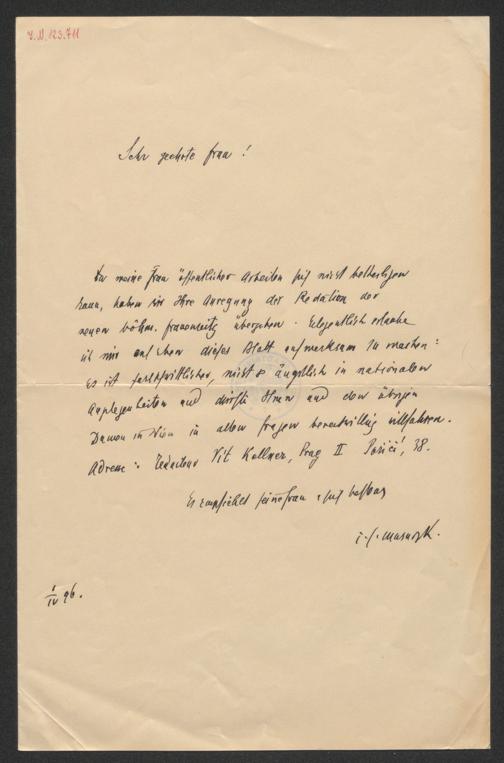 I.N. 123.711
Sehr geehrte Frau!
Da meine Frau öffentlicher Arbeiten sich nicht betheiligen
kann, haben wir Ihre Anregung der Redaktion der
neuen böhm. Frauenzeitg übergeben. Elegentlich erlaube
ich mir auf dieses Blatt aufmerksam zu machen:
es ist fortschrittlicher, nicht so ängstlich in nationalen
Angelegenheiten und dürfte Ihnen und den übrigen
Damen in Wien in allen Fragen bereitwillig willfahren.
Adresse: Redacteur Vit Kellner, Prag II Poříč, 38.
Es empfiehlt seine Frau u sich bestens
T. G. Masaryk.
1/IV 96.